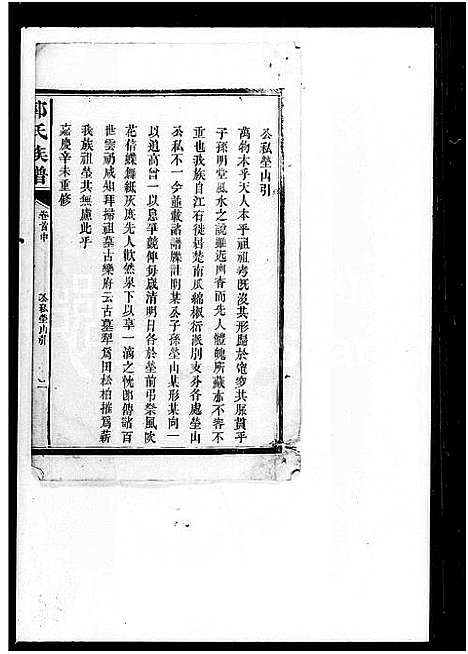 公私塋山引
萬物本乎天人本乎祖祖考既沒其形歸於窀穸其脈貫乎
子孫明堂風水之說雖近幽杳而先人體魄所藏亦不容不
重也我族自江右徙居楚南瓜綿椒衍派別支分各處塋山
公私不一今並載諸譜牒註明某公子孫塋山某形某向一
以追高曾一以息爭競俾每歲清明日各於塋前弔祭風吹
花信蝶舞紙灰庶先人歡然泉下以享一滴之忱卽傳諸百
世雲礽咸知拜掃祖墓古樂府云古墓犁為田松柏摧為薪
我族祖塋其無慮此乎
嘉慶辛未重修
氏族譜
卷首中
公私塋山引